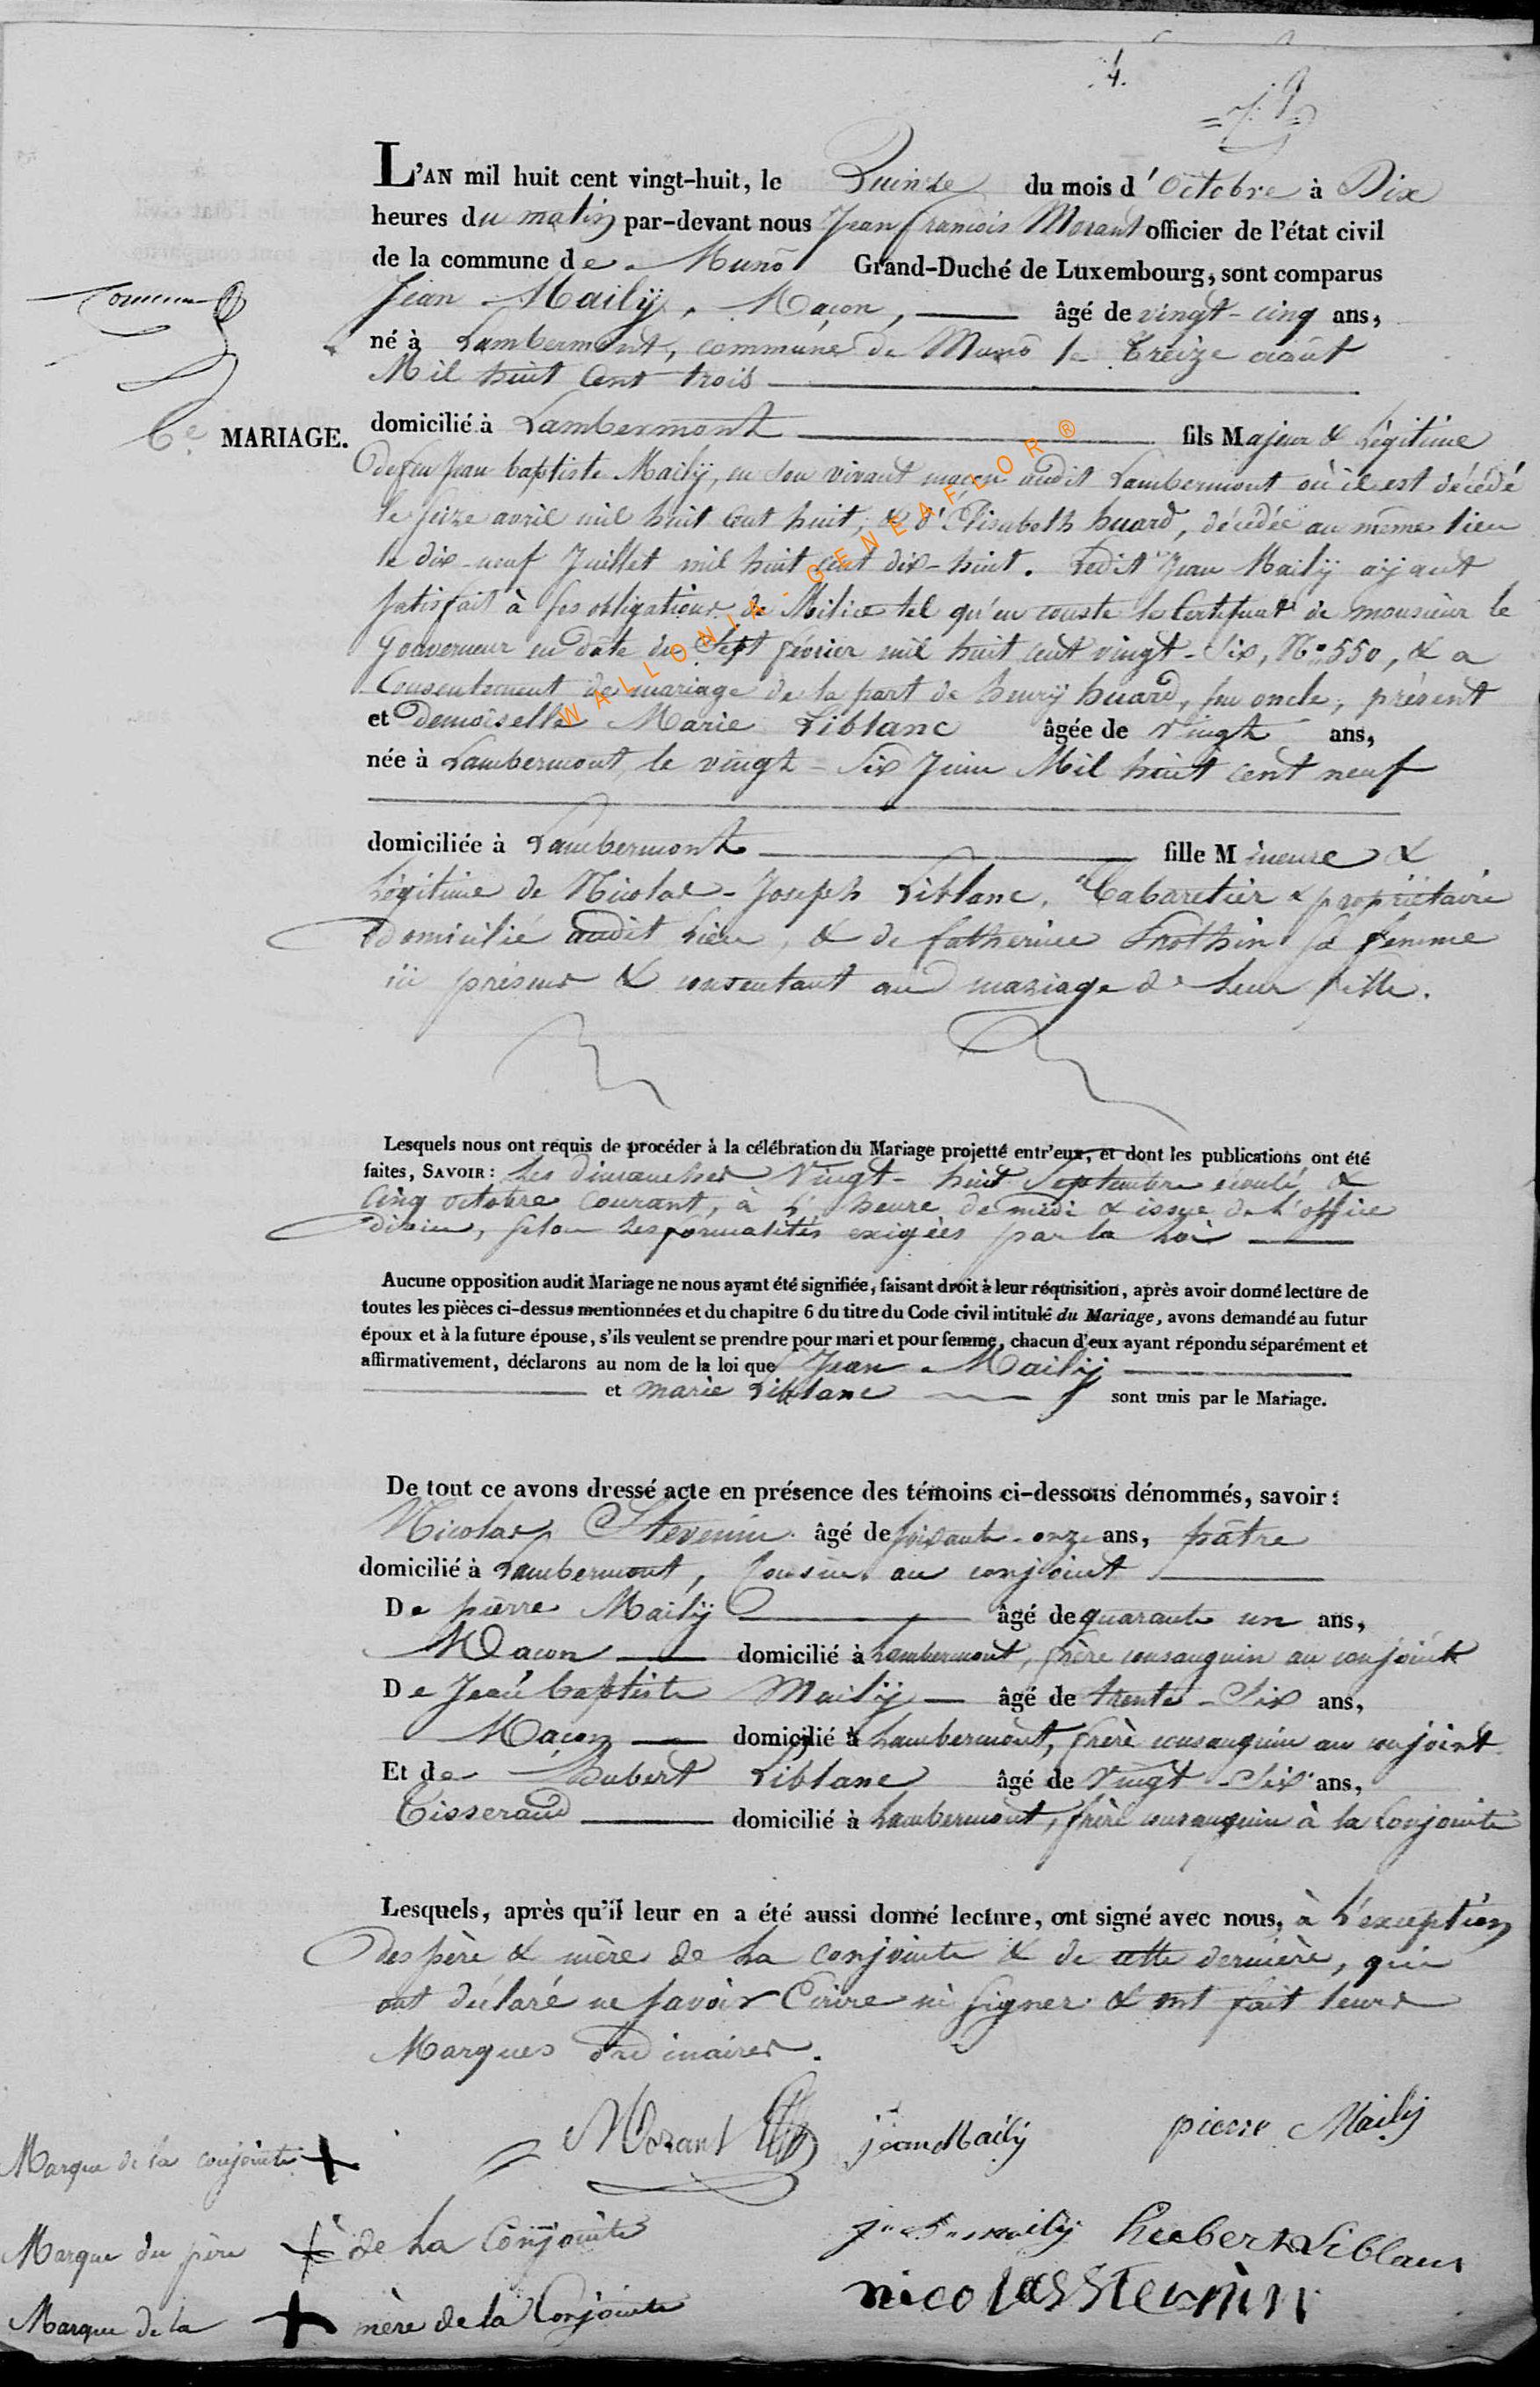 4.
L'AN mil huit cent vingt-huit, le Quinze du mois d'Octobre à Dix
heures du matin par-devant nous Jean françois Morant officier de l'état civil
de la commune de Muno Grand-Duché de Luxembourg, sont comparus
Jean Mailÿ, Maçon, âgé de vingt-cinq ans,
né à Lambermont, commune de Muno le treize août
Mil huit Cent trois
6e MARIAGE.
domicilié à Lambermont fils Majeur & légitime
de feu Jean baptiste Mailÿ, en son vivant maçon audit Lambermont où il est décédé
le seize avril mil huit Cent huit, & d'Elisabeth huard, décédée au même lieu
le dix-neuf Juillet mil huit cent dix-huit. Ledit Jean Mailÿ aÿant
satisfait à ses obligations de Milice tel qu'en conste le Certificat de monsieur le
Gouverneur en date du Sept février mil huit cent vingt-Six, N° 550, & a
Consentement de mariage de la part de henrÿ huard, son oncle, présent
et Demoiselle Marie Liblanc âgée de Vingt ans,
née à Lambermont, le vingt-Six Juin Mil huit cent neuf
domiciliée à Lambermont fille Mineure &
légitime de Nicolas-Joseph Liblanc, Cabaretier & propriétaire
domicilié audit Lieu, & de Catherine sa femme
ici présens & consentant au mariage de Leur fille.
Lesquels nous ont requis de procéder à la célébration du Mariage projetté entr'eux, et dont les publications ont été
faites, SAVOIR: Les dimanches Vingt-huit Septembre écoulé, &
Cinq octobre Courant, à L'heure de midi & issue de L'office
divin, selon Les formalités exigées par la Loi
Aucune opposition audit Mariage ne nous ayant été signifiée, faisant droit à leur réquisition, après avoir donné lecture de
toutes les pièces ci-dessus mentionnées et du chapitre 6 du titre du Code civil intitulé du Mariage, avons demandé au futur
époux et à la future épouse, s'ils veulent se prendre pour mari et pour femme, chacun d'eux ayant répondu séparément et
affirmativement, déclarons au nom de la loi que Jean Mailÿ
et Marie Liblanc sont unis par le Mariage.
De tout ce avons dressé acte en présence des témoins ci-dessous dénommés, savoir:
Nicolas Stevenin âgé de soixante-onze ans, pâtre
domicilié à Lambermont, Cousin au conjoint
De pierre Mailÿ âgé de quarante un ans,
Maçon domicilié à Lambermont, frère consanguin au conjoint
De Jean baptiste Mailÿ âgé de trente-Six ans,
Maçon domicilié à Lambermont, frère consanguin au conjoint
Et de hubert Liblanc âgé de Vingt-Six ans,
Tisserand domicilié à Lambermont, frère consanguin à la Conjointe
Lesquels, après qu'il leur en a été aussi donné lecture, ont signé avec nous, à L'exception
des père & mère de La conjointe & de cette dernière, qui
ont déclaré ne savoir Ecrire ni Signer & ont fait leurs
Marques ordinaires.
Morant jean Mailÿ pierre Mailÿ
Marque de la conjointe +
Marque du père + de La Conjointe
hubert Liblanc
Marque de la + mère de la Conjointe
nicolas Stevenin
WALLONIA-GENEAFLOR®